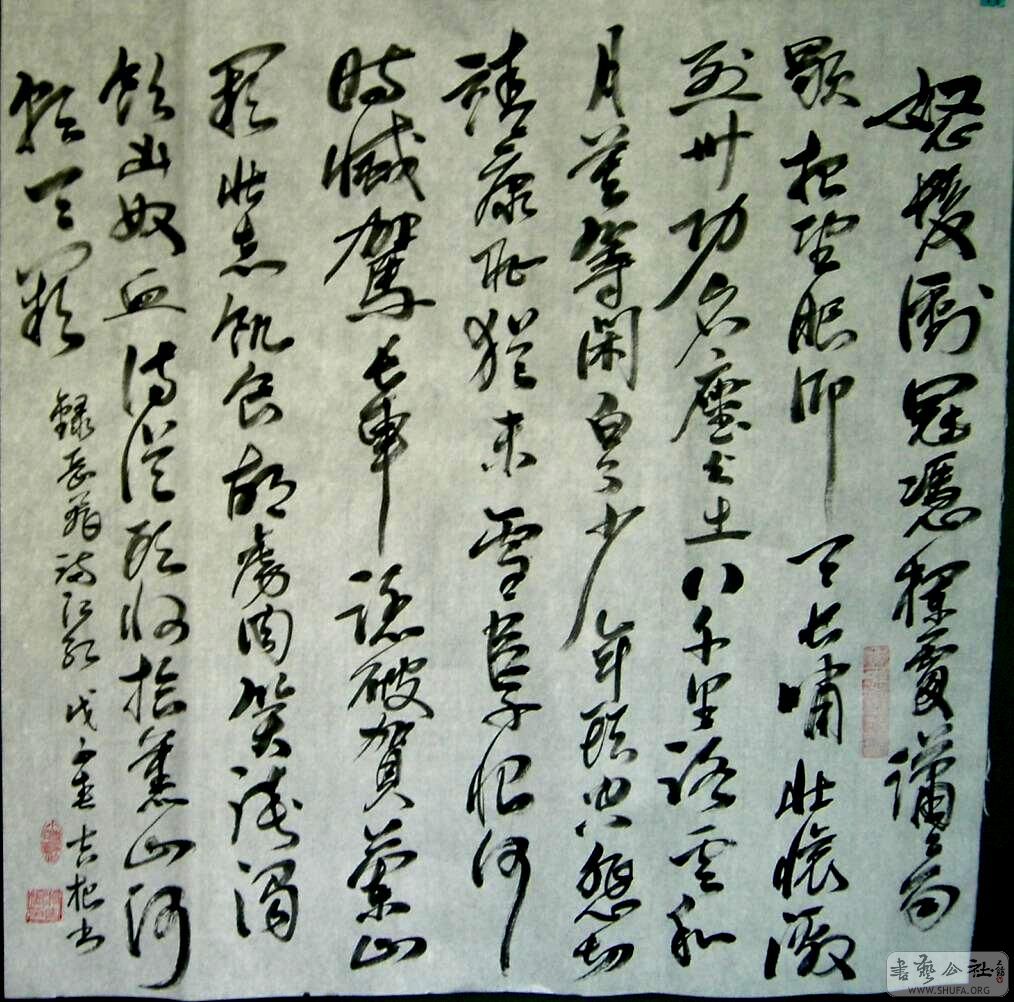 怒髮衝冠憑欄處瀟々雨
歇抬望眼仰天長嘯壯懷激
烈卅功名塵与土八千里路雲和
月莫等閑白了少年頭空悲切
靖康恥猶未雪臣子恨何
時憾駕長車踏破賀蘭山
闕壯志飢食胡虜肉笑談渴
飲匈奴血待從頭收拾舊山河
朝天闕
錄岳飛滿江紅 戊子 書
書藝公社
WWW.SHUFA.ORG